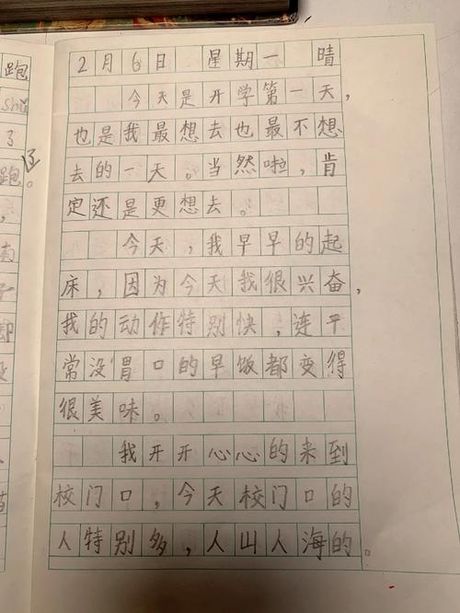 2月6日 星期一 晴
今天是开学第一天，
也是我最想去也最不想
去的一天。当然啦，肯
定还是更想去。
今天，我早早的起
床，因为今天我很兴奋，
我的动作特别快，连平
常没胃口的早饭都变得
很美味。
我开开心心的来到
校门口，今天校门口的
人特别多，人山人海的。
跑
shū
了
跑了。